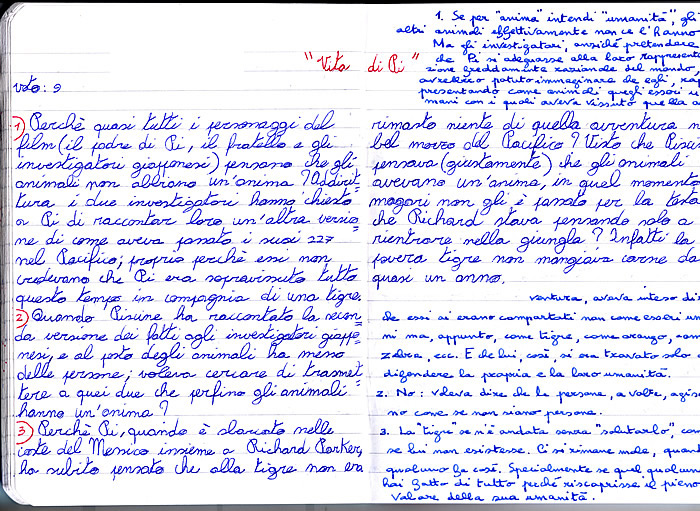 "Vita di Pi"
voto: 9
1) Perchè quasi tutti i personaggi del
film (il padre di Pi, il fratello e gli
investigatori giapponesi) pensano che gli
animali non abbiano un'anima? Addirit-
tura i due investigatori hanno chiesto
a Pi di raccontar loro un'altra versio-
ne di come aveva passato i suoi 227
nel Pacifico; proprio perchè essi non
credevano che Pi era sopravvissuto tutto
questo tempo in compagnia di una tigre.
2) Quando Piscine ha raccontato la secon-
da versione dei fatti agli investigatori giappo-
nesi, e al posto degli animali ha messo
delle persone; voleva cercare di trasmet-
tere a quei due che perfino gli animali
hanno un'anima?
3) Perchè Pi, quando è sbarcato nelle
coste del Messico insieme a Richard Parker,
ha subito pensato che alla tigre non era
rimasto niente di quella avventura n
bel mezzo del Pacifico? Visto che Pisci
pensava (giustamente) che gli animali
avevano un'anima, in quel momento
magari non gli è passato per la testa
che Richard stava pensando solo a
rientrare nella giungla? Infatti la
povera tigre non mangiava carne da
quasi un anno.
1. Se per "anima" intendi "umanità", gli
altri animali effettivamente non ce l'hanno
Ma gli investigatori, anziché pretendere
che Pi si adeguasse alla loro rappresenta
zione freddamente razionale del mondo,
avrebbero potuto immaginare che egli, rap
presentando come animali quegli esseri u
mani con i quali aveva vissuto quella a
ventura, aveva inteso di
che essi si erano comportati non come esseri um
ni ma, appunto, come tigre, come orango, com
zebra, ecc. E che lui, così, si era trovato solo
difendere la propria e la loro umanità.
2. No: voleva dire che le persone, a volte, agis
no come se non siano persone.
3. La "tigre" se n'è andata senza "salutarlo", com
se lui non esistesse. Ci si rimane male, quand
qualcuno fa così. Specialmente se quel qualcun
hai fatto di tutto perché riscoprisse il pieno
valore della sua umanità.